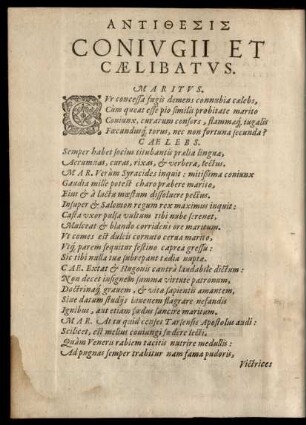 ΑΝΤΙΘΕΣΙΣ
CONIVGII ET
CÆLIBATVS.
MARITVS.
CVr concessa fugis demens connubia cælebs,
Cùm queat esse pio similis probitate marito
Coniunx, curarum consors, flammaq́; iugalis
Fœcundusq́; torus, nec non fortuna secunda?
CAELEBS.
Semper habet socius titubantis prælia linguæ,
Aerumnas, curas, rixas, & verbera, lectus.
MAR. Verùm Syracides inquit: mitissima coniunx
Gaudia mille potest charo præbere marito,
Eius & à luctu mæstum dissoluere pectus.
Insuper & Salomon regum rex maximus inquit:
Casta vxor pulsa vultum tibi nube serenet,
Mulceat & blando corridens ore maritum.
Vt comes est dulcis cornuto cerua marito,
Vtq́; parem sequitur festino caprea gressu:
Sic tibi nulla tuæ subrepant tædia nuptæ.
CAE. Extat & Hugonis canteræ laudabile dictum:
Non decet insignem summa virtute patronum,
Doctrinaq́; grauem, & vita sapienti amantem,
Siue datum studijs iuuenem flagrare nefandis
Ignibus, aut etiam fœdus sancire maritam.
MAR. At tu quid censet Tarsensis Apostolus audi:
Scilicet, est melius coniungi fœdere lecti,
Quàm Veneris rabiem tacitis nutrire medullis:
Ad pugnas semper trahitur nam fama pudoris,
Victrices